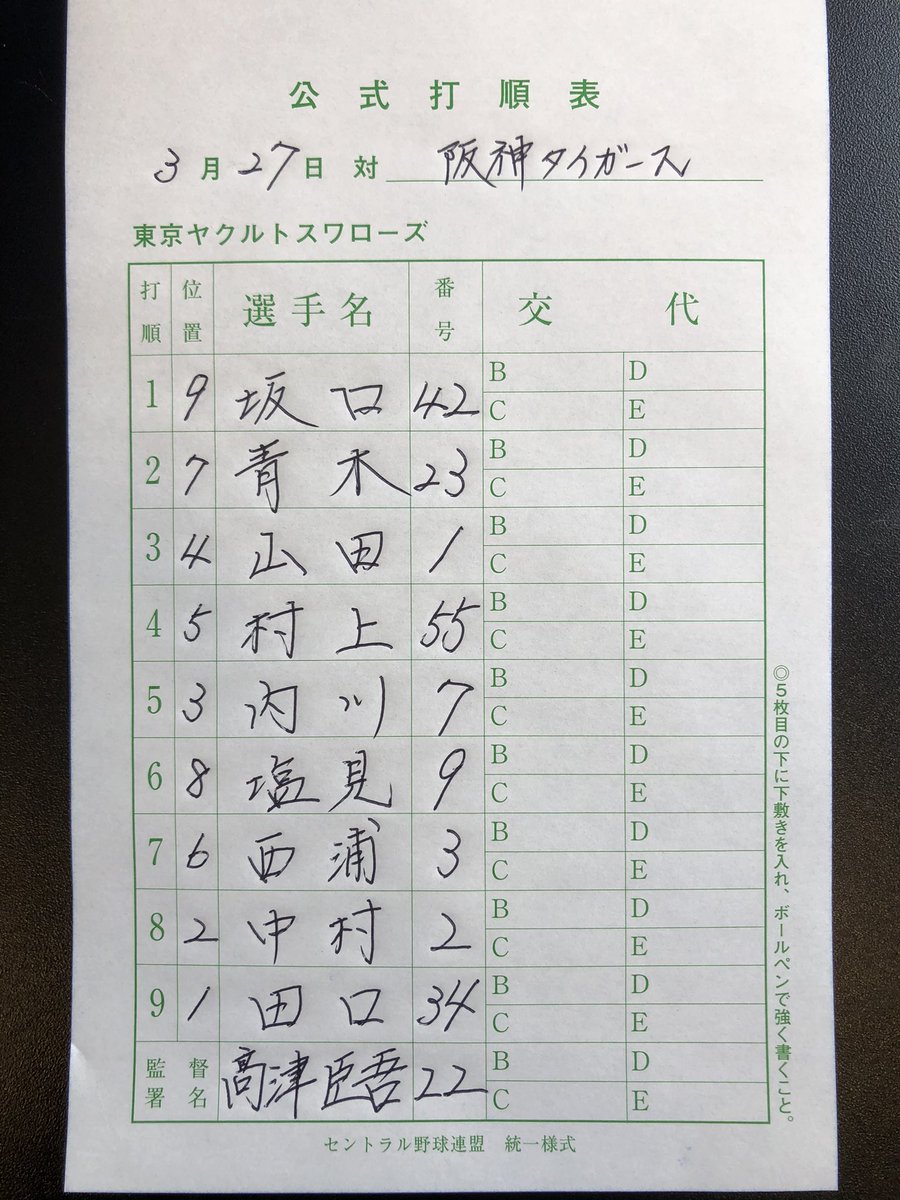 公式打順表
3月27日 対 阪神タイガース
東京ヤクルトスワローズ
打順 位置 選手名 番号 交代
1 9 坂口 42 B D C E
2 7 青木 23 B D C E
3 4 山田 1 B D C E
4 5 村上 55 B D C E
5 3 内川 7 B D C E
6 8 塩見 9 B D C E
7 6 西浦 3 B D C E
8 2 中村 2 B D C E
9 1 田口 34 B D C E
監督署名 高津臣吾 22 B D C E
◎5枚目の下に下敷きを入れ、ボールペンで強く書くこと。
セントラル野球連盟 統一様式